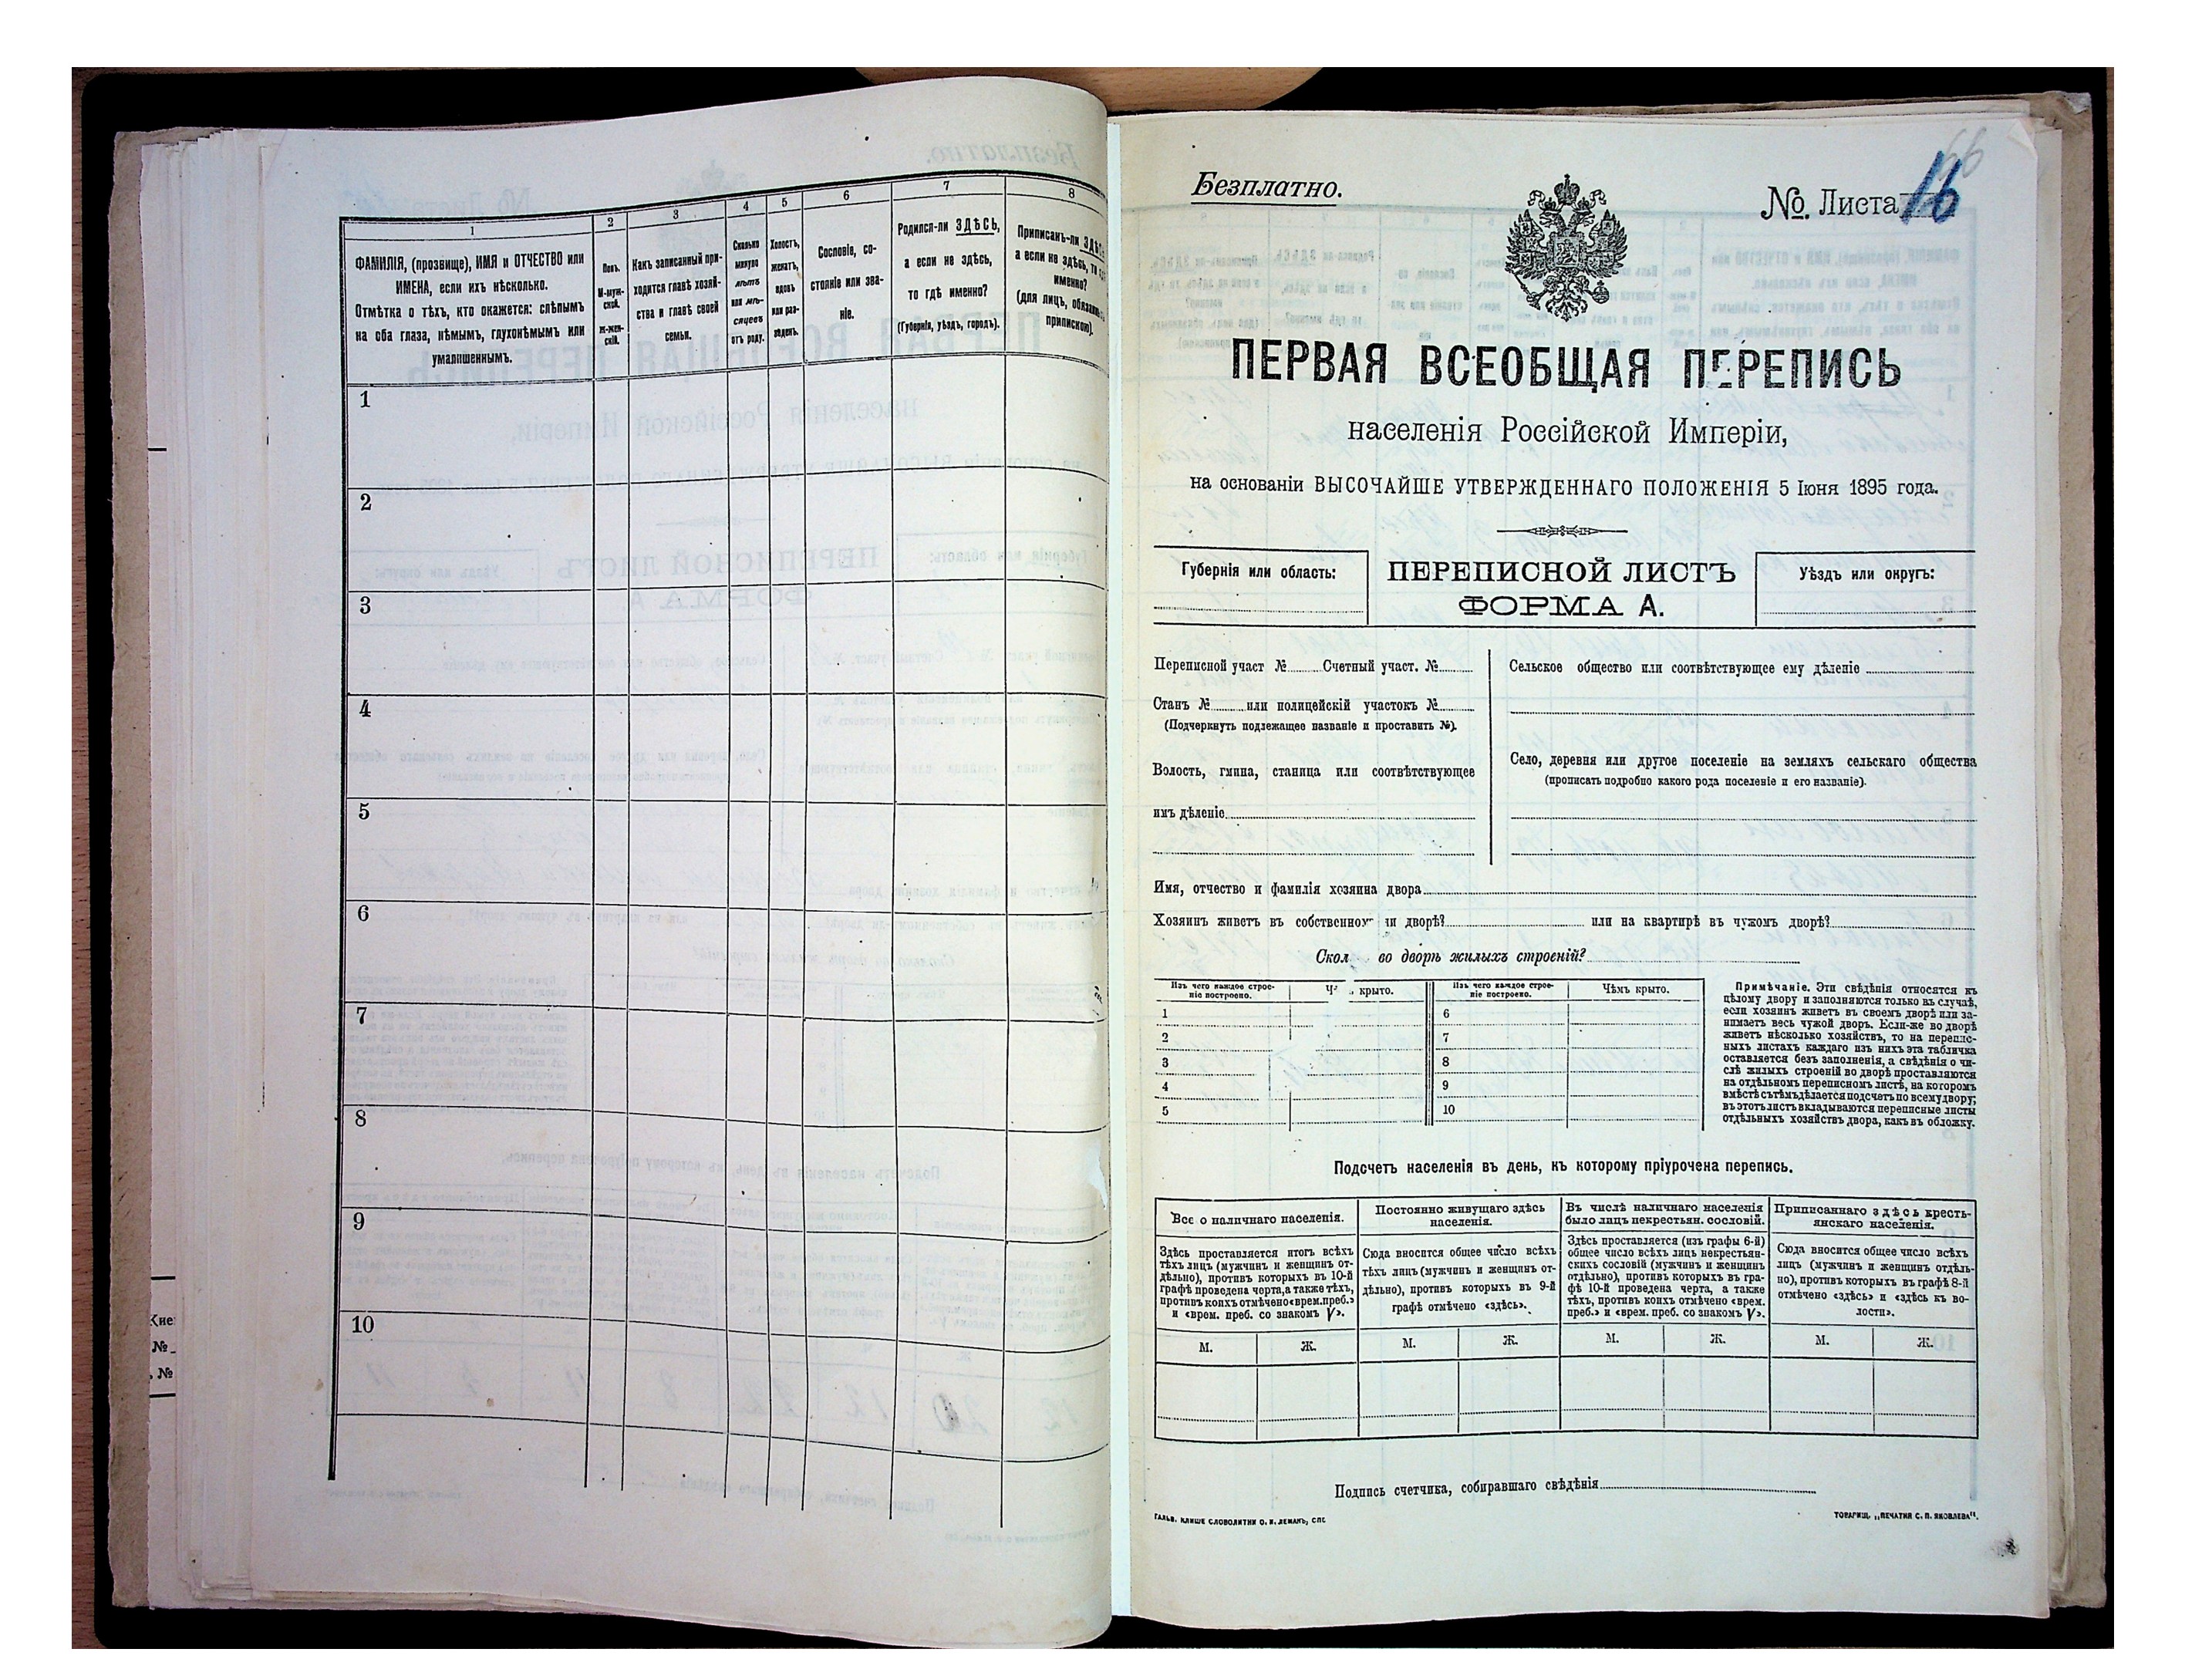 1
ФАМИЛІЯ, (прозвище), ИМЯ и ОТЧЕСТВО или
ИМЕНА, если ихъ нѣсколько.
Отмѣтка о тѣхъ, кто окажется: слѣпымъ
на оба глаза, нѣмымъ, глухонѣмымъ или
умалишеннымъ.
2
Полъ.
М-муж-
ской.
ж-жен-
скій.
3
Какъ записанный при-
ходится главѣ хозяй-
ства и главѣ своей
семьи.
4
Сколько
минуло
лѣтъ
или мѣ-
сяцевъ
отъ роду.
5
Холостъ,
женатъ,
вдовъ
или раз-
веденъ.
6
Сословіе, со-
стояніе или зва-
ніе.
7
Родился-ли ЗДѢСЬ,
а если не здѣсь,
то гдѣ именно?
(Губернія, уѣздъ, городъ).
8
Приписанъ-ли
а если не здѣсь, то
именно?
(для лицъ,
припискою).
1
2
3
4
5
6
7
8
9
10
Безплатно.
№. Листа 16
66
ПЕРВАЯ ВСЕОБЩАЯ ПЕРЕПИСЬ
населенія Россійской Имперіи,
на основаніи ВЫСОЧАЙШЕ УТВЕРЖДЕННАГО ПОЛОЖЕНІЯ 5 Іюня 1895 года.
Губернія или область:
ПЕРЕПИСНОЙ ЛИСТЪ
ФОРМА А.
Уѣздъ или округъ:
Переписной участ № Счетный участ. №
Станъ № или полицейскій участокъ №
(Подчеркнуть подлежащее названіе и проставить №).
Волость, гмина, станица или соотвѣтствующее
имъ дѣленіе
Сельское общество или соотвѣтствующее ему дѣленіе
Село, деревня или другое поселеніе на земляхъ сельскаго общества
(прописать подробно какого рода поселеніе и его названіе).
Имя, отчество и фамилія хозяина двора
Хозяинъ живетъ въ собственно ли дворѣ? или на квартирѣ въ чужомъ дворѣ?
Скол во дворѣ жилыхъ строеній?
Изъ чего каждое строе-
ніе построено.
Ч крыто.
Изъ чего каждое строе-
ніе построено.
Чѣмъ крыто.
1
2
3
4
5
6
7
8
9
10
Примѣчаніе. Эти свѣдѣнія относятся къ
цѣлому двору и заполняются только въ случаѣ,
если хозяинъ живетъ въ своемъ дворѣ или за-
нимаетъ весь чужой дворъ. Если-же во дворѣ
живетъ нѣсколько хозяйствъ, то на перепис-
ныхъ листахъ каждаго изъ нихъ эта табличка
оставляется безъ заполненія, а свѣдѣнія о чи-
слѣ жилыхъ строеній во дворѣ проставляются
на отдѣльномъ переписномъ листѣ, на которомъ
вмѣстѣ съ тѣмъ дѣлается подсчетъ по всему двору;
въ этотъ листъ вкладываются переписные листы
отдѣльныхъ хозяйствъ двора, какъ въ обложку.
Подсчетъ населенія въ день, къ которому пріурочена перепись.
Все о наличнаго населенія.
Здѣсь проставляется итогъ всѣхъ
тѣхъ лицъ (мужчинъ и женщинъ от-
дѣльно), противъ которыхъ въ 10-й
графѣ проведена черта, а также тѣхъ,
противъ коихъ отмѣчено «врем. преб.»
и «врем. преб. со знакомъ V».
Постоянно живущаго здѣсь
населенія.
Сюда вносится общее число всѣхъ
тѣхъ лицъ (мужчинъ и женщинъ от-
дѣльно), противъ которыхъ въ 9-й
графѣ отмѣчено «здѣсь».
Въ числѣ наличнаго населенія
было лицъ некрестьян. сословій.
Здѣсь проставляется (изъ графы 6-й)
общее число всѣхъ лицъ некрестьян-
скихъ сословій (мужчинъ и женщинъ
отдѣльно), противъ которыхъ въ гра-
фѣ 10-й проведена черта, а также
тѣхъ, противъ коихъ отмѣчено «врем.
преб.» и «врем. преб. со знакомъ V».
Приписаннаго здѣсь кресть-
янскаго населенія.
Сюда вносится общее число всѣхъ
лицъ (мужчинъ и женщинъ отдѣль-
но), противъ которыхъ въ графѣ 8-й
отмѣчено «здѣсь» и «здѣсь къ во-
лости».
М. Ж. М. Ж. М. Ж. М. Ж.
Подпись счетчика, собиравшаго свѣдѣнія
ГАЛЬВ. КЛИШЕ СЛОВОЛИТНИ О. И. ЛЕМАНЪ, СПБ
ТОВАРИЩ. „ПЕЧАТНЯ С. П. ЯКОВЛЕВА“.
№
№